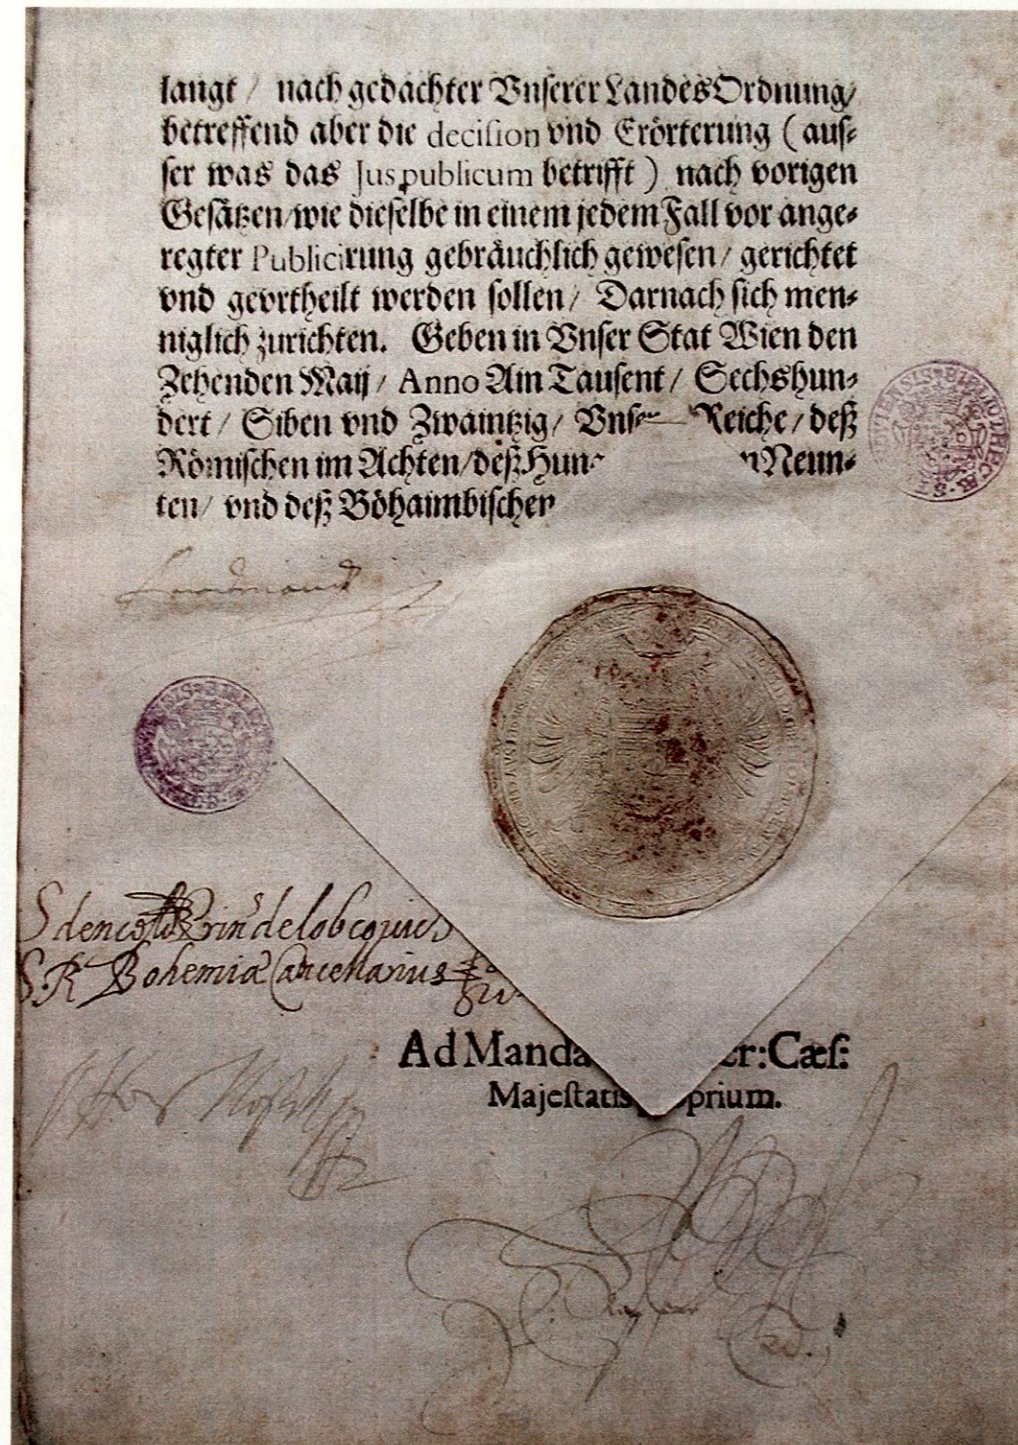 langt / nach gedachter Vnserer LandesOrdnung/
betreffend aber die decision vnd Erörterung ( aus-
ser was das Jus publicum betrifft ) nach vorigen
Gesätzen/ wie dieselbe in einem jedem Fall vor ange-
regter Publicirung gebräuchlich gewesen / gerichtet
vnd gevrtheilt werden sollen / Darnach sich men-
niglich zurichten. Geben in Vnser Stat Wien den
Zehenden Maij / Anno Ain Tausent / Sechshun-
dert / Siben vnd Zwaintzig / Vnser Reiche / deß
Römischen im Achten/ deß Hun- n Neun-
ten/ vnd deß Böhaimbischen
Ferdinand
Sdenco Prin de lobcowics
S. R. Bohemiæ Cancellarius
Ad Manda er: Cæs:
Majestatis prium.